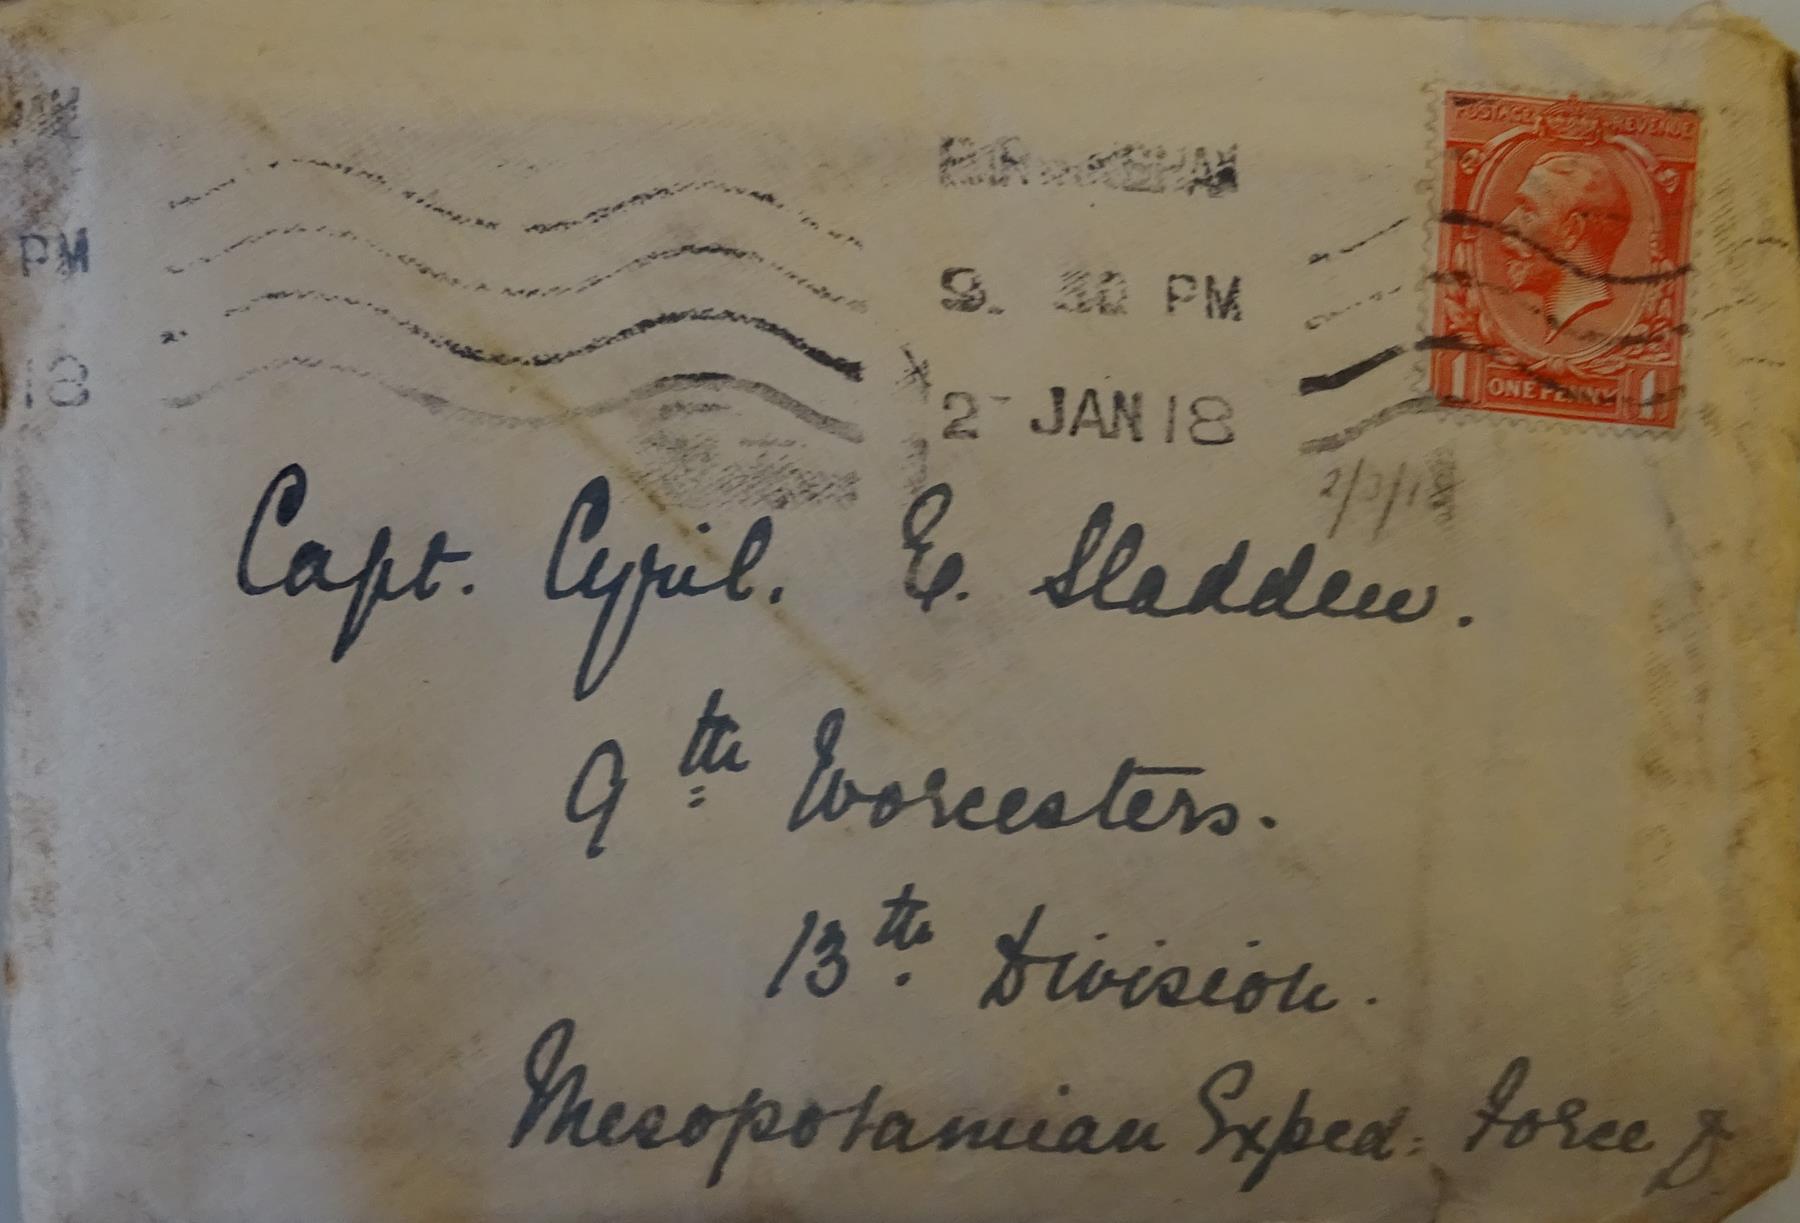 PM
18
BIRMINGHAM
9. 30 PM
2 - JAN 18
POSTAGE REVENUE
1 ONE PENNY 1
Capt. Cyril. E. Sladden.
9th Worcesters.
13th. Division.
Mesopotamian Exped: Force